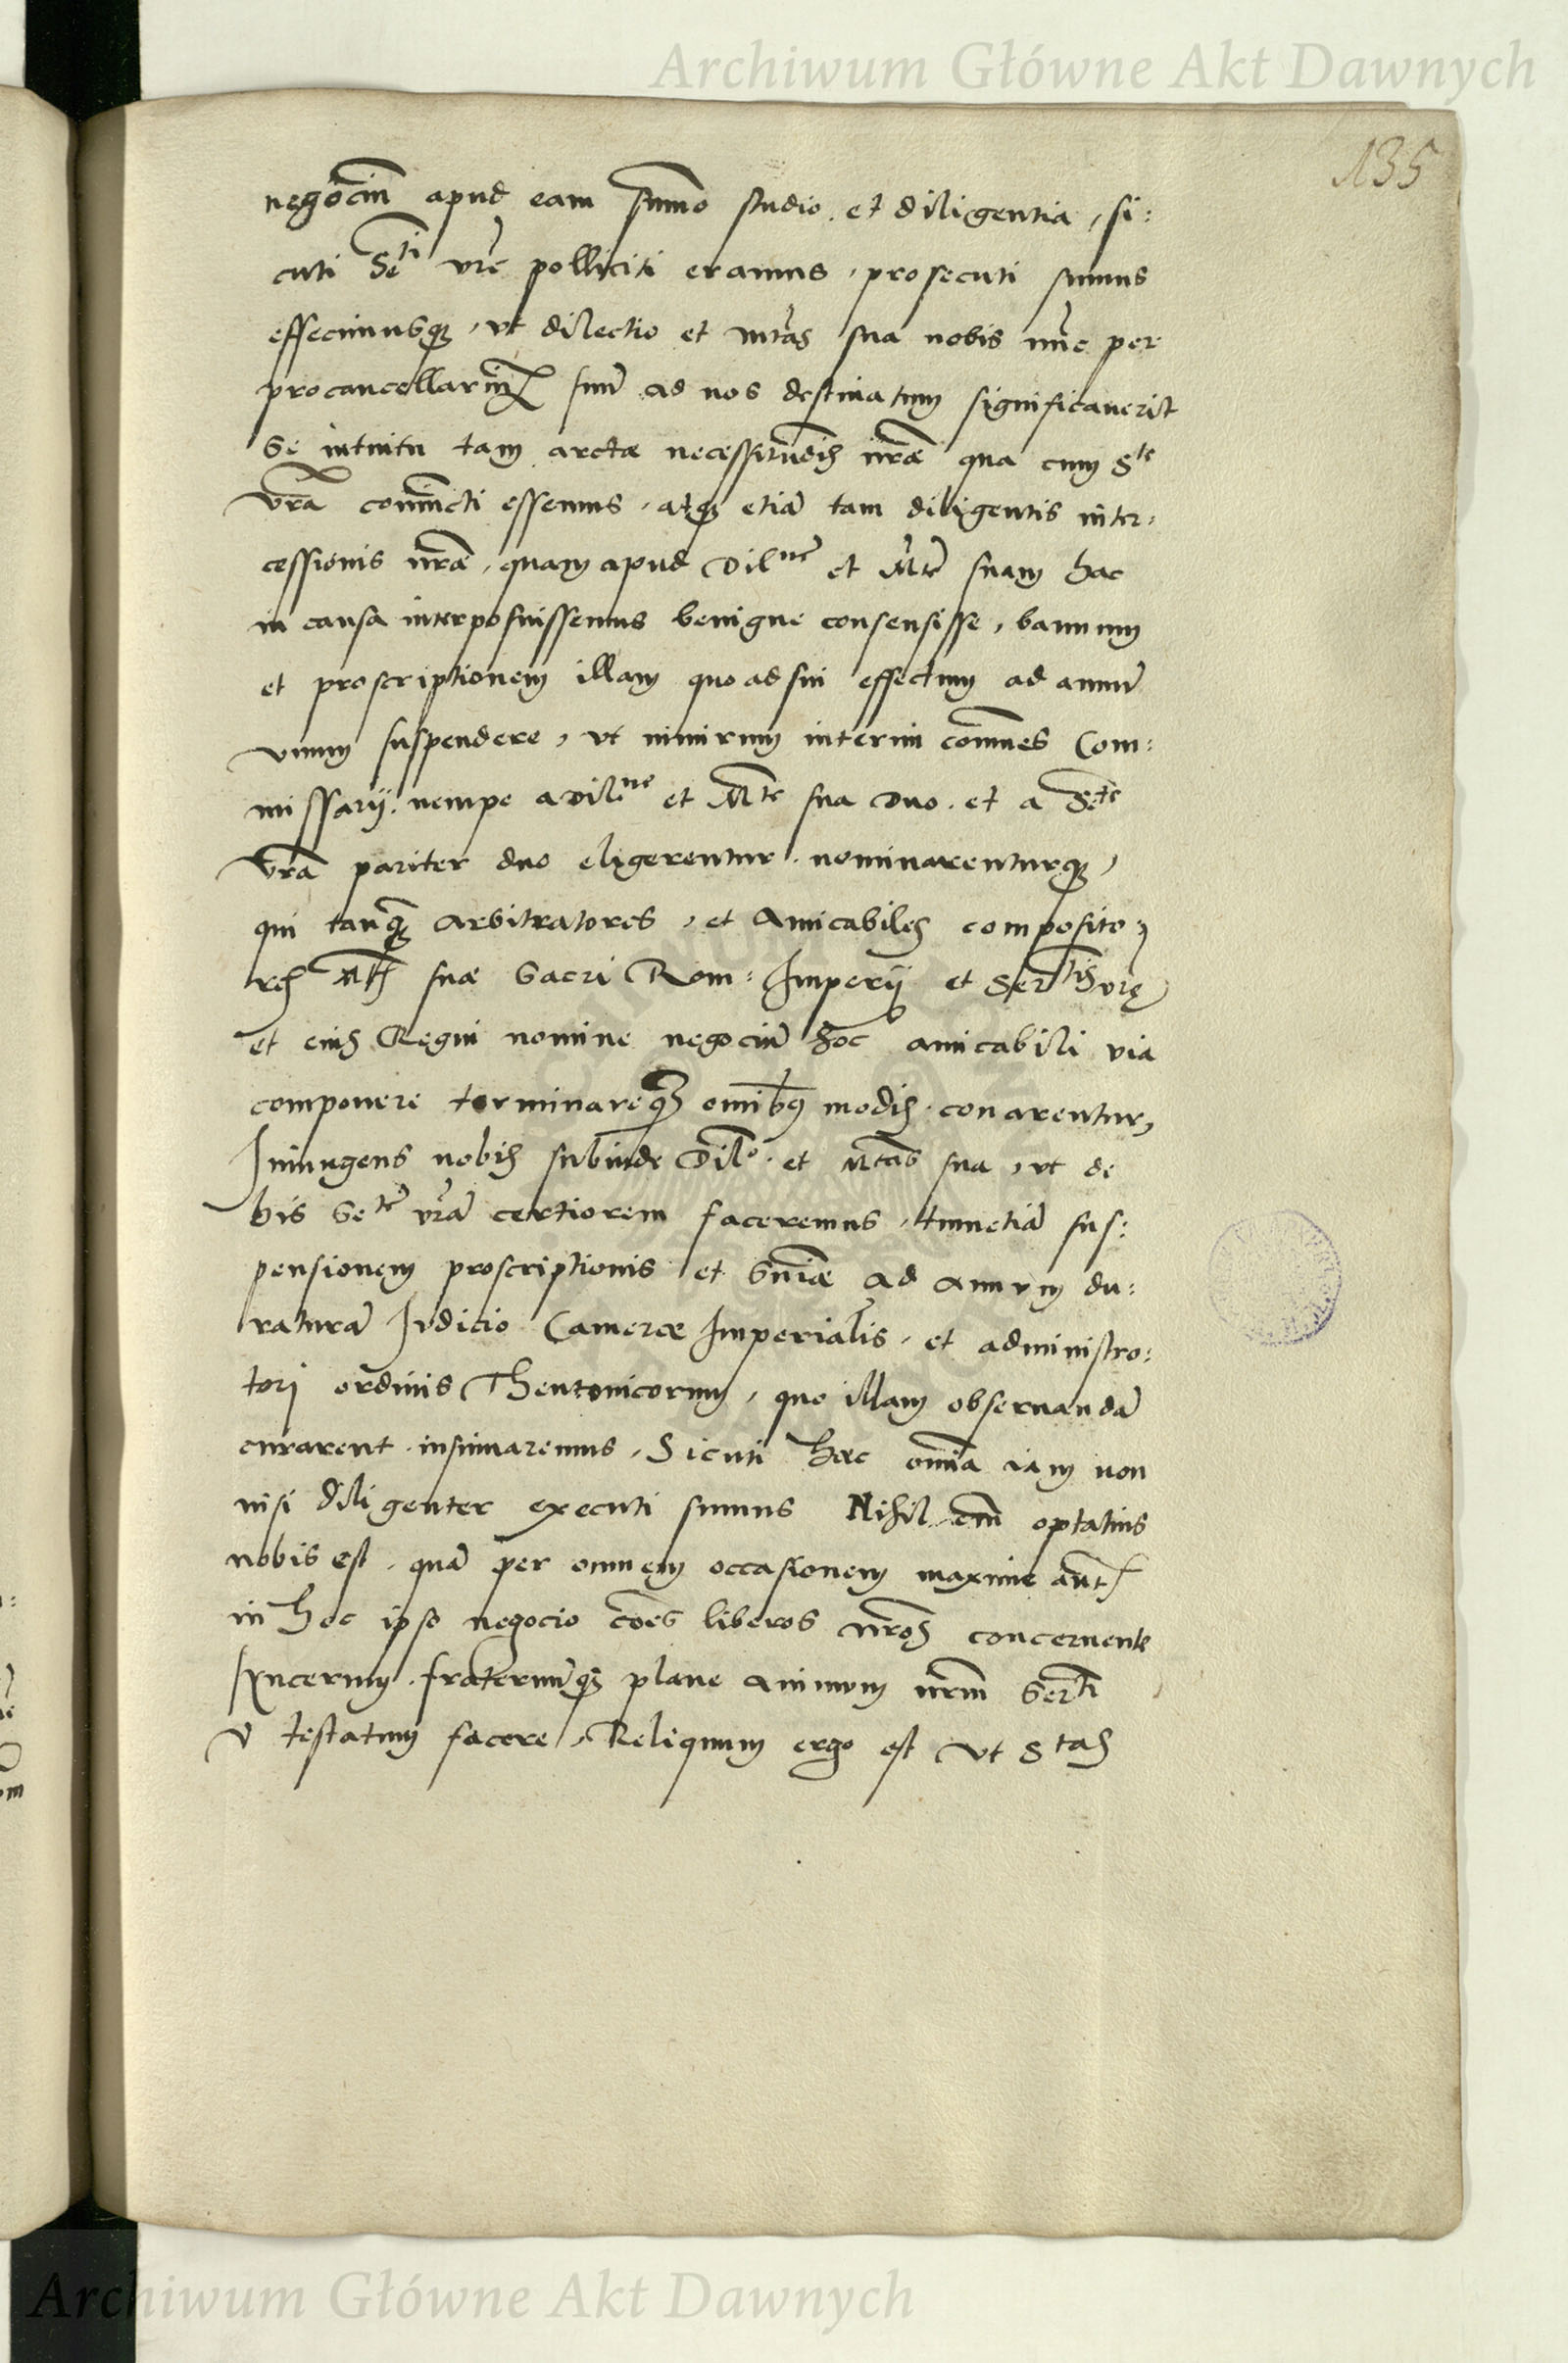 Archiwum Główne Akt Dawnych
135
negociũ apud eam sum̃o studio et diligentia, si:
cuti Se^ti vr̃e polliciti eramus, prosecuti sumus
effecimusq₃, vt dilectio et mt̃as sua nobis nũc per
procancellariũ suũ ad nos destinatum significauerit
se intuitu tam arctæ necessitudis nr̃æ qua cum S^te
vr̃a coniũcti essemus, atq₃ etiã tam diligentis inter,
cessionis nr̃æ, quam apud Dil^nē et M^tē suam hac
in causa interposuissemus benigne consensisse, bannum
et proscriptionem illam quo ad sui effectum ad annũ
vnum suspendere, vt nimirum interim com̃nes Com:
missarij nempe a Dil^ne et M^te sua duo et a Se^te
vr̃a pariter duo eligerentur nominarenturq₃,
qui tanq̃ Arbitratores, et Amicabiles composito,
res M^tis suæ Sacri Rom: Imperij et Ser^tis vrę
et eius Regni nomine negociũ hoc amicabili via
componere terminareq₃ omĩbus modis conarentur,
Iniungens nobis subinde Dil^o et Mt̃as sua, vt de
his Se^tē vr̃ã certiorem faceremus, tum etiã sus:
pensionem proscriptionis et Sn̄iæ ad annum du:
raturã Iudicio Cameræ Imperialis, et administra:
tori ordinis Theutonicorum, quo illam obseruandã
curarent insinuaremus, Sicuti hæc om̃ia iam non
nisi diligenter executi sumus Nihil em̃ optatius
nobis est, quã per omnem occasionem maxime aũt
in hoc ipso negocio cões liberos nr̃os concernente
syncerum, fraternũq₃ plane animum nrm̃ Ser^ti
V testatum facere, Reliquum ergo est vt S^tas
Archiwum Główne Akt Dawnych